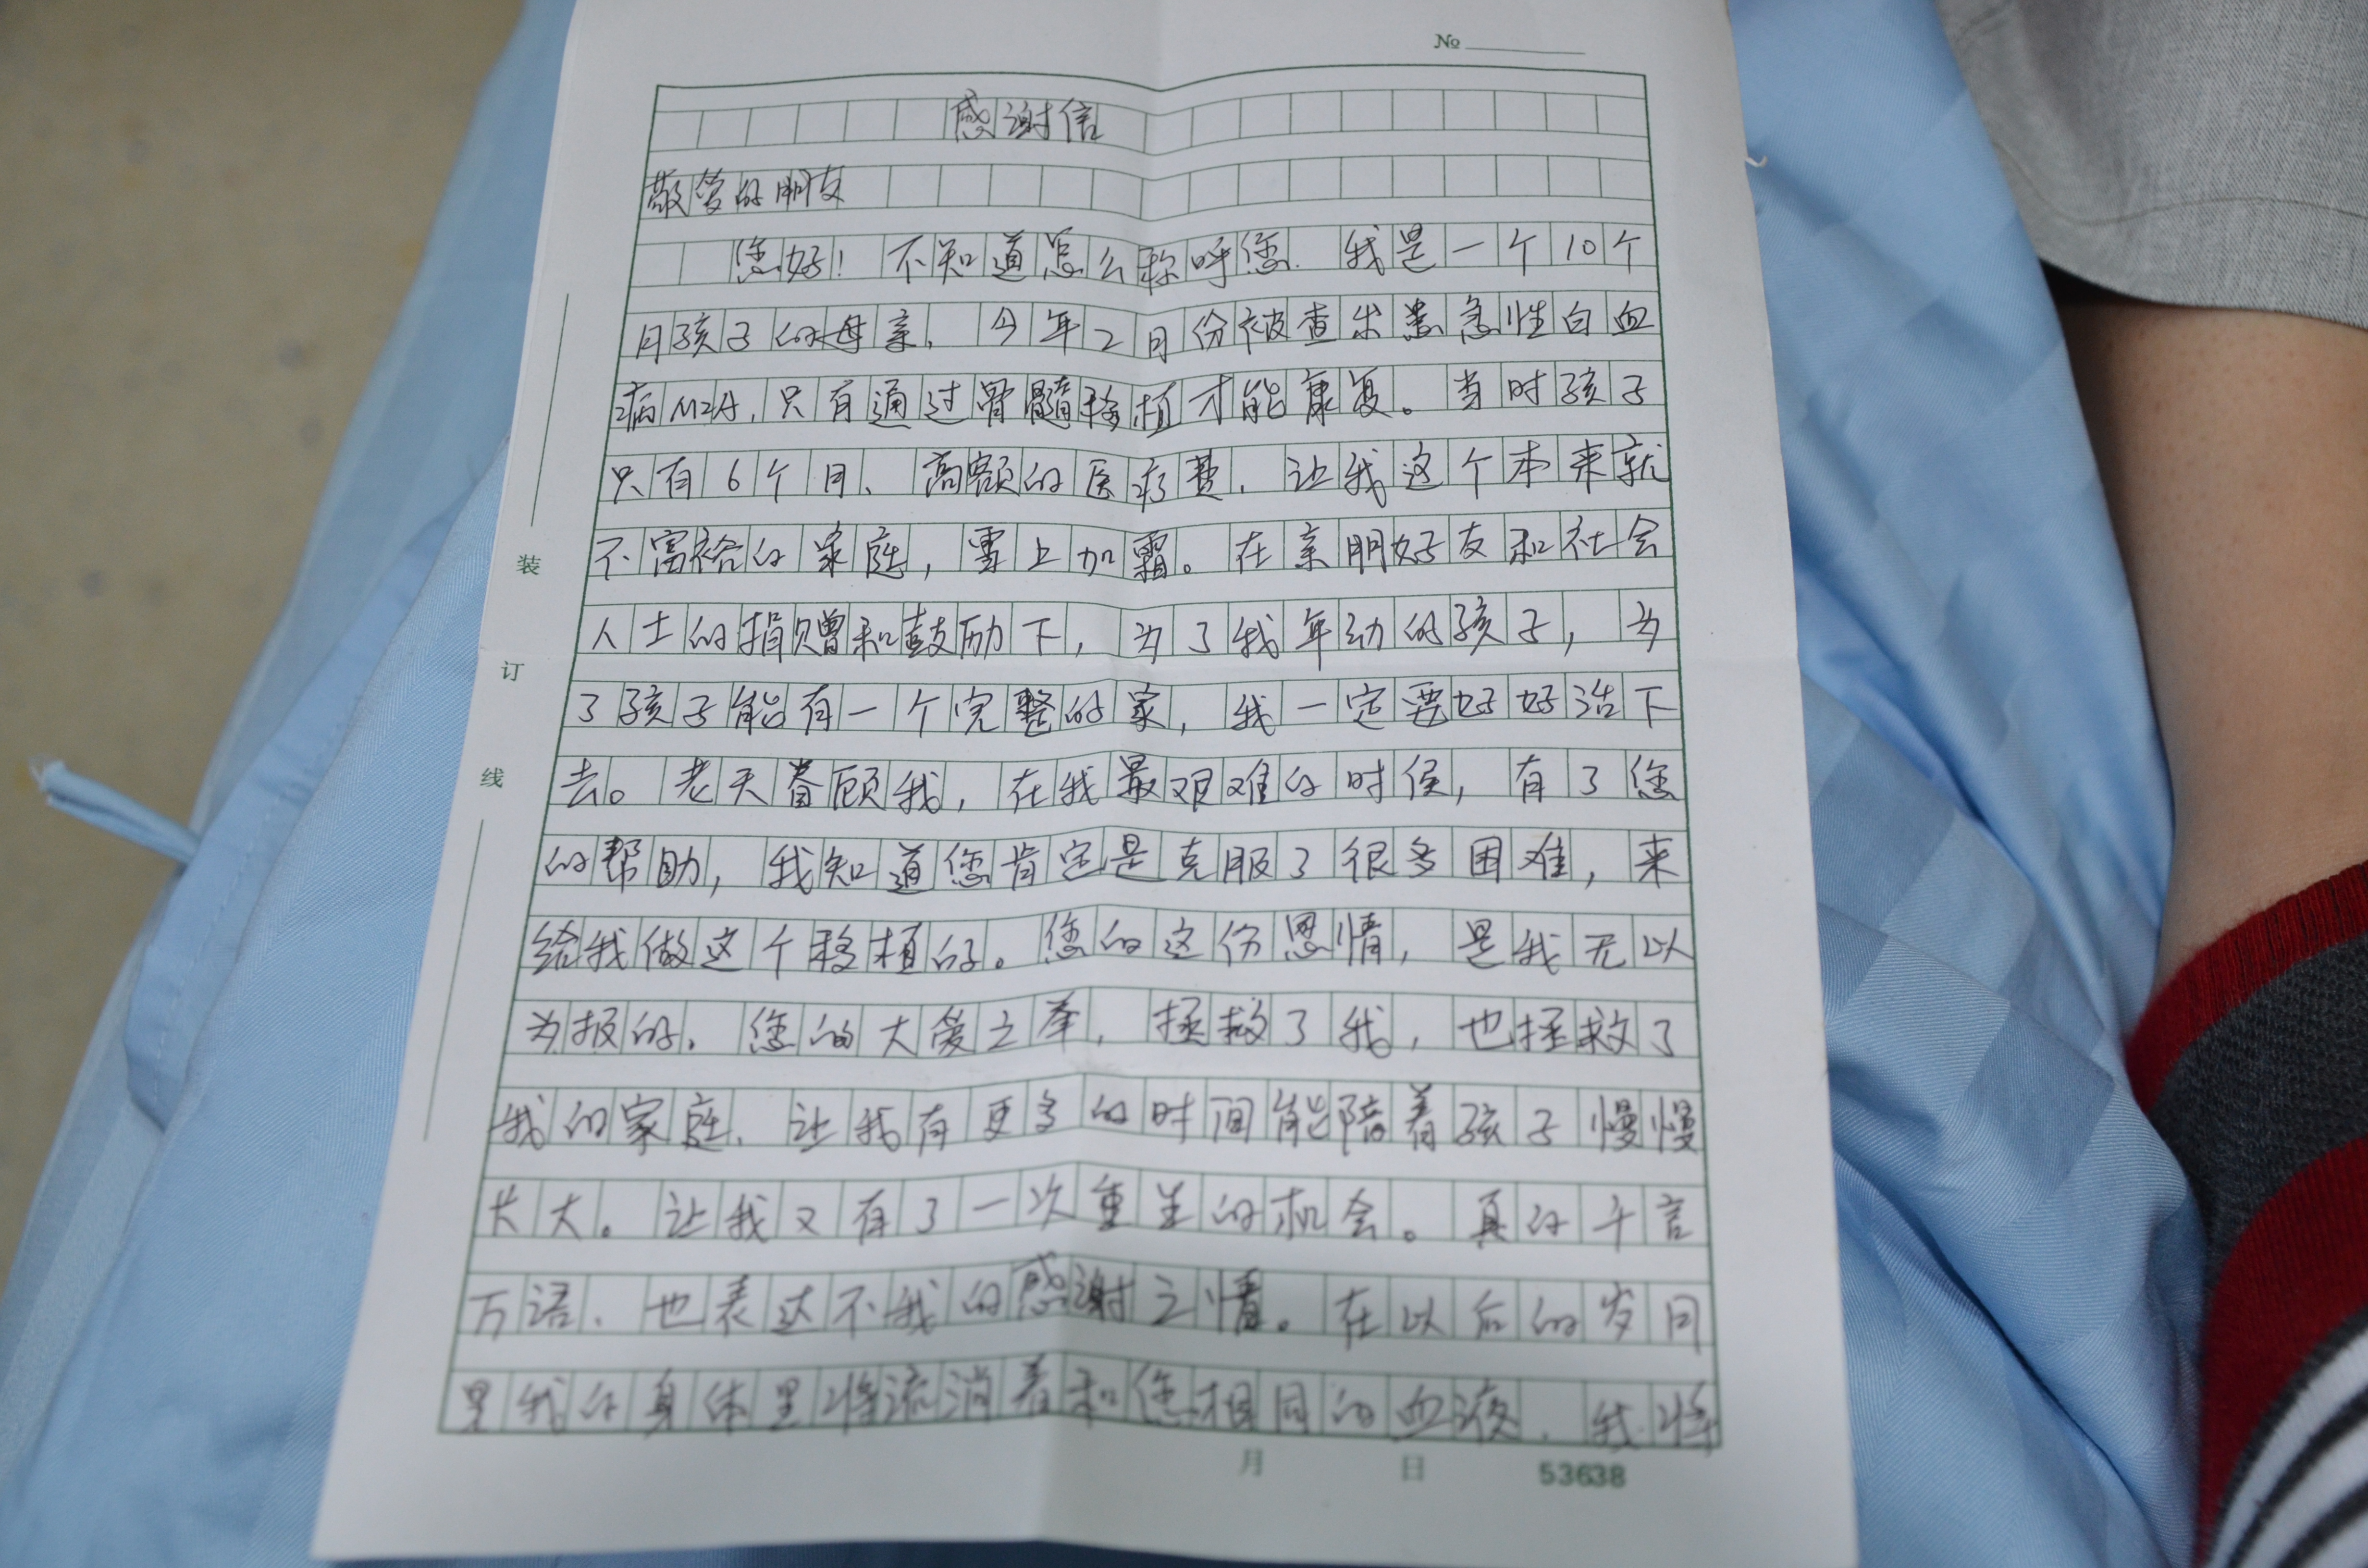 №
感谢信
敬爱的朋友
您好！不知道怎么称呼您.我是一个10个
月孩子的母亲,今年2月份被查出患急性白血
病M2A,只有通过骨髓移植才能康复。当时孩子
只有6个月、高额的医疗费,让我这个本来就
不富裕的家庭,雪上加霜。在亲朋好友和社会
人士的捐赠和鼓励下,为了我年幼的孩子,为
了孩子能有一个完整的家,我一定要好好活下
去。老天眷顾我,在我最艰难的时候,有了您
的帮助,我知道您肯定是克服了很多困难,来
给我做这个移植的。您的这份恩情,是我无以
为报的。您的大爱之举,拯救了我,也拯救了
我的家庭、让我有更多的时间能陪着孩子慢慢
长大。让我又有了一次重生的机会。真的千言
万语、也表达不我的感谢之情。在以后的岁月
里我的身体里将流淌着和您相同的血液、我将
装
订
线
月 日 53638